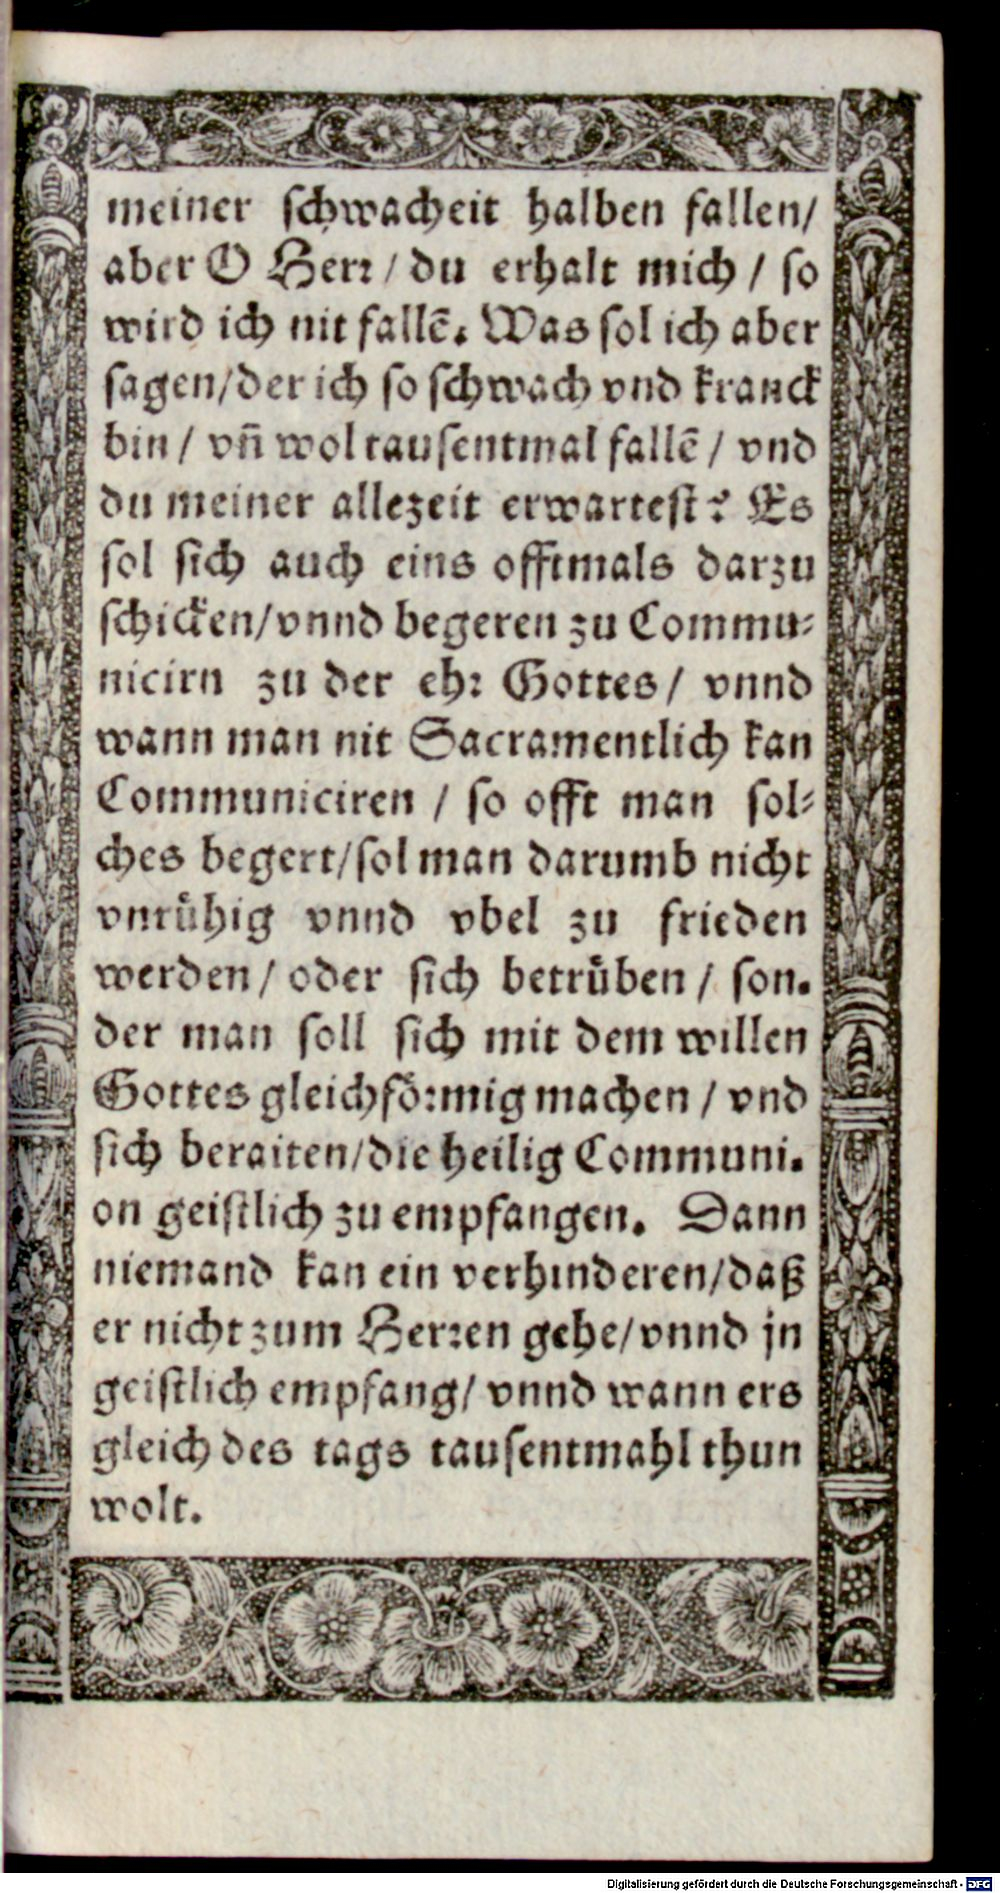 meiner schwacheit halben fallen/
aber O Herr / du erhalt mich / so
wird ich nit fallẽ. Was sol ich aber
sagen/der ich so schwach vnd kranck
bin / vñ wol tausentmal fallẽ / vnd
du meiner allezeit erwartest? Es
sol sich auch eins offtmals darzu
schicken/vnnd begeren zu Commu-
nicirn zu der ehr Gottes / vnnd
wann man nit Sacramentlich kan
Communiciren / so offt man sol-
ches begert/sol man darumb nicht
vnrühig vnnd vbel zu frieden
werden / oder sich betrüben / son.
der man soll sich mit dem willen
Gottes gleichförmig machen / vnd
sich beraiten/die heilig Communi.
on geistlich zu empfangen. Dann
niemand kan ein verhinderen/daß
er nicht zum Herren gehe/vnnd jn
geistlich empfang/ vnnd wann ers
gleich des tags tausentmahl thun
wolt.
Digitalisierung gefördert durch die Deutsche Forschungsgemeinschaft - DFG